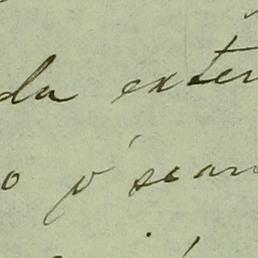 da exter
o p' sean